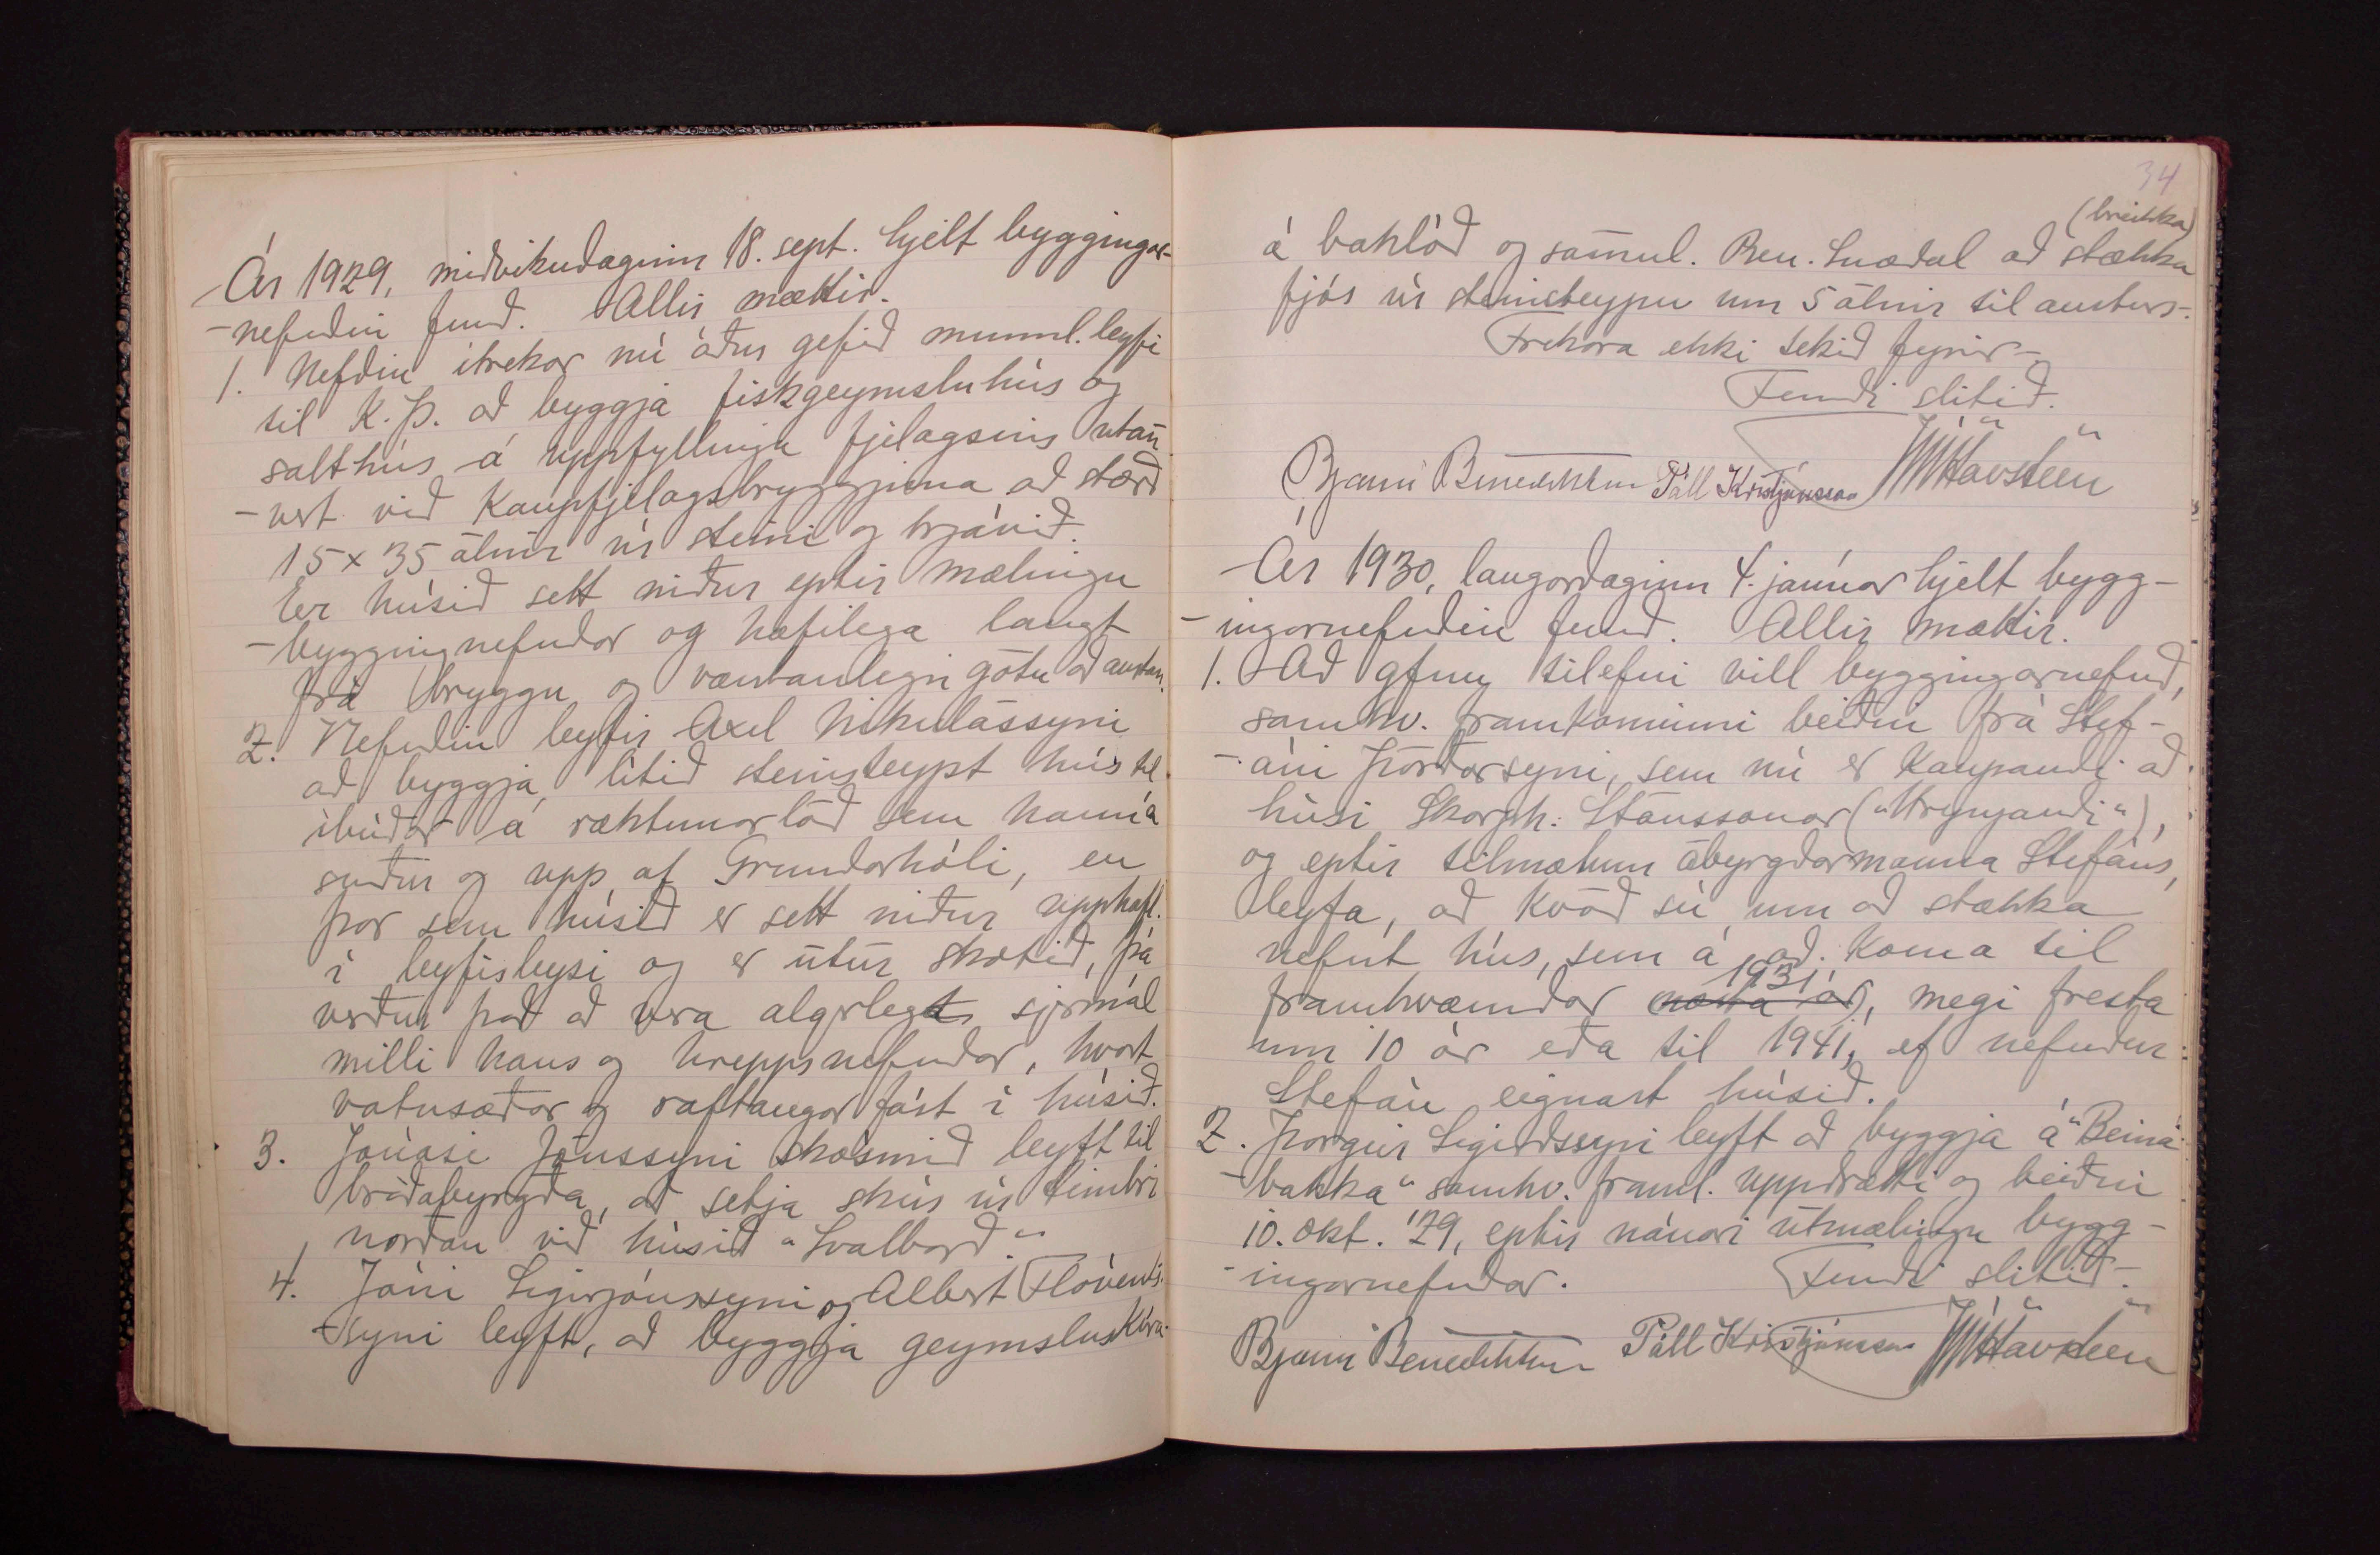 Ár 1929, miðvikudaginn 18. sept. hjelt byggingar-
-nefndin fund. Allir mættir.
1. Nefndin ítrekar nú áður gefið munnl. leyfi
til K.Þ. að byggja fiskgeymsluhús og
salthús á uppfyllingu fjelagsins utan
-vert við Kaupfjelagsbryggjuna að stærð
15 x 35 álnir úr steini og trjávið.
Er húsið sett niður eptir mælingu
-byggingnefndar og hæfilega langt
frá bryggu og væntanlegri götu að austan.
2. Nefndin leyfir Axel Nikulássyni
að byggja lítið steinsteypt hús til
íbúðar á ræktunarlóð sem hann á
suður og upp af Grundarhóli, en
þar sem húsið er sett niður upphafl.
í leyfisleysi og er útúr skotið, þá
verður það að vera algerlegt sjermál
milli hans og hreppsnefndar, hvort
vatnsæðar og raftaugar fást í húsið.
3. Jónasi Jónssyni skósmið leyft til
bráðabyrgða, að setja skúr úr timbri
norðan við húsið "Svalbarð."
4. Jóni Sigurjónssyni og Albert Flóvents-
-syni leyft, að byggja geymsluskúra
34
(breikka)
á baklóð og sömul. Ben. Snædal að stækka
fjós úr steinsteypu um 5 álnir til austurs-.
Frekara ekki tekið fyrir-
Fundi slitið.
Bjarni Benediktsson Páll Kristjánsson JHHavsteen
Ár 1930, laugardaginn 4. janúar hjelt bygg-
-ingarnefndin fund. Allir mættir.
1. Að gefnu tilefni vill byggingarnefnd,
samkv. framkominni beiðni frá Stef-
-áni Þórðarsyni, sem nú er kaupandi að
húsi Skarph: Stefánssonar ("Hrynjandi"),
og eptir tilmælum ábyrgðarmanna Stefáns,
leyfa, að kvöð sú um að stækka
nefnt hús, sem á að koma til
1931
framkvæmdar næsta ár, megi fresta
um 10 ár eða til 1941, ef nefndur
Stefán eignast húsið.
2. Þorgeir Sigurðssyni leyft að byggja á "Beina-
-bakka" samkv. framl. uppdrætti og beiðni
10. okt. '29, eptir nánari útmælingu bygg-
-ingarnefndar. Fundi slitið-.
Bjarni Benediktsson Páll Kristjánsson JHHavsteen